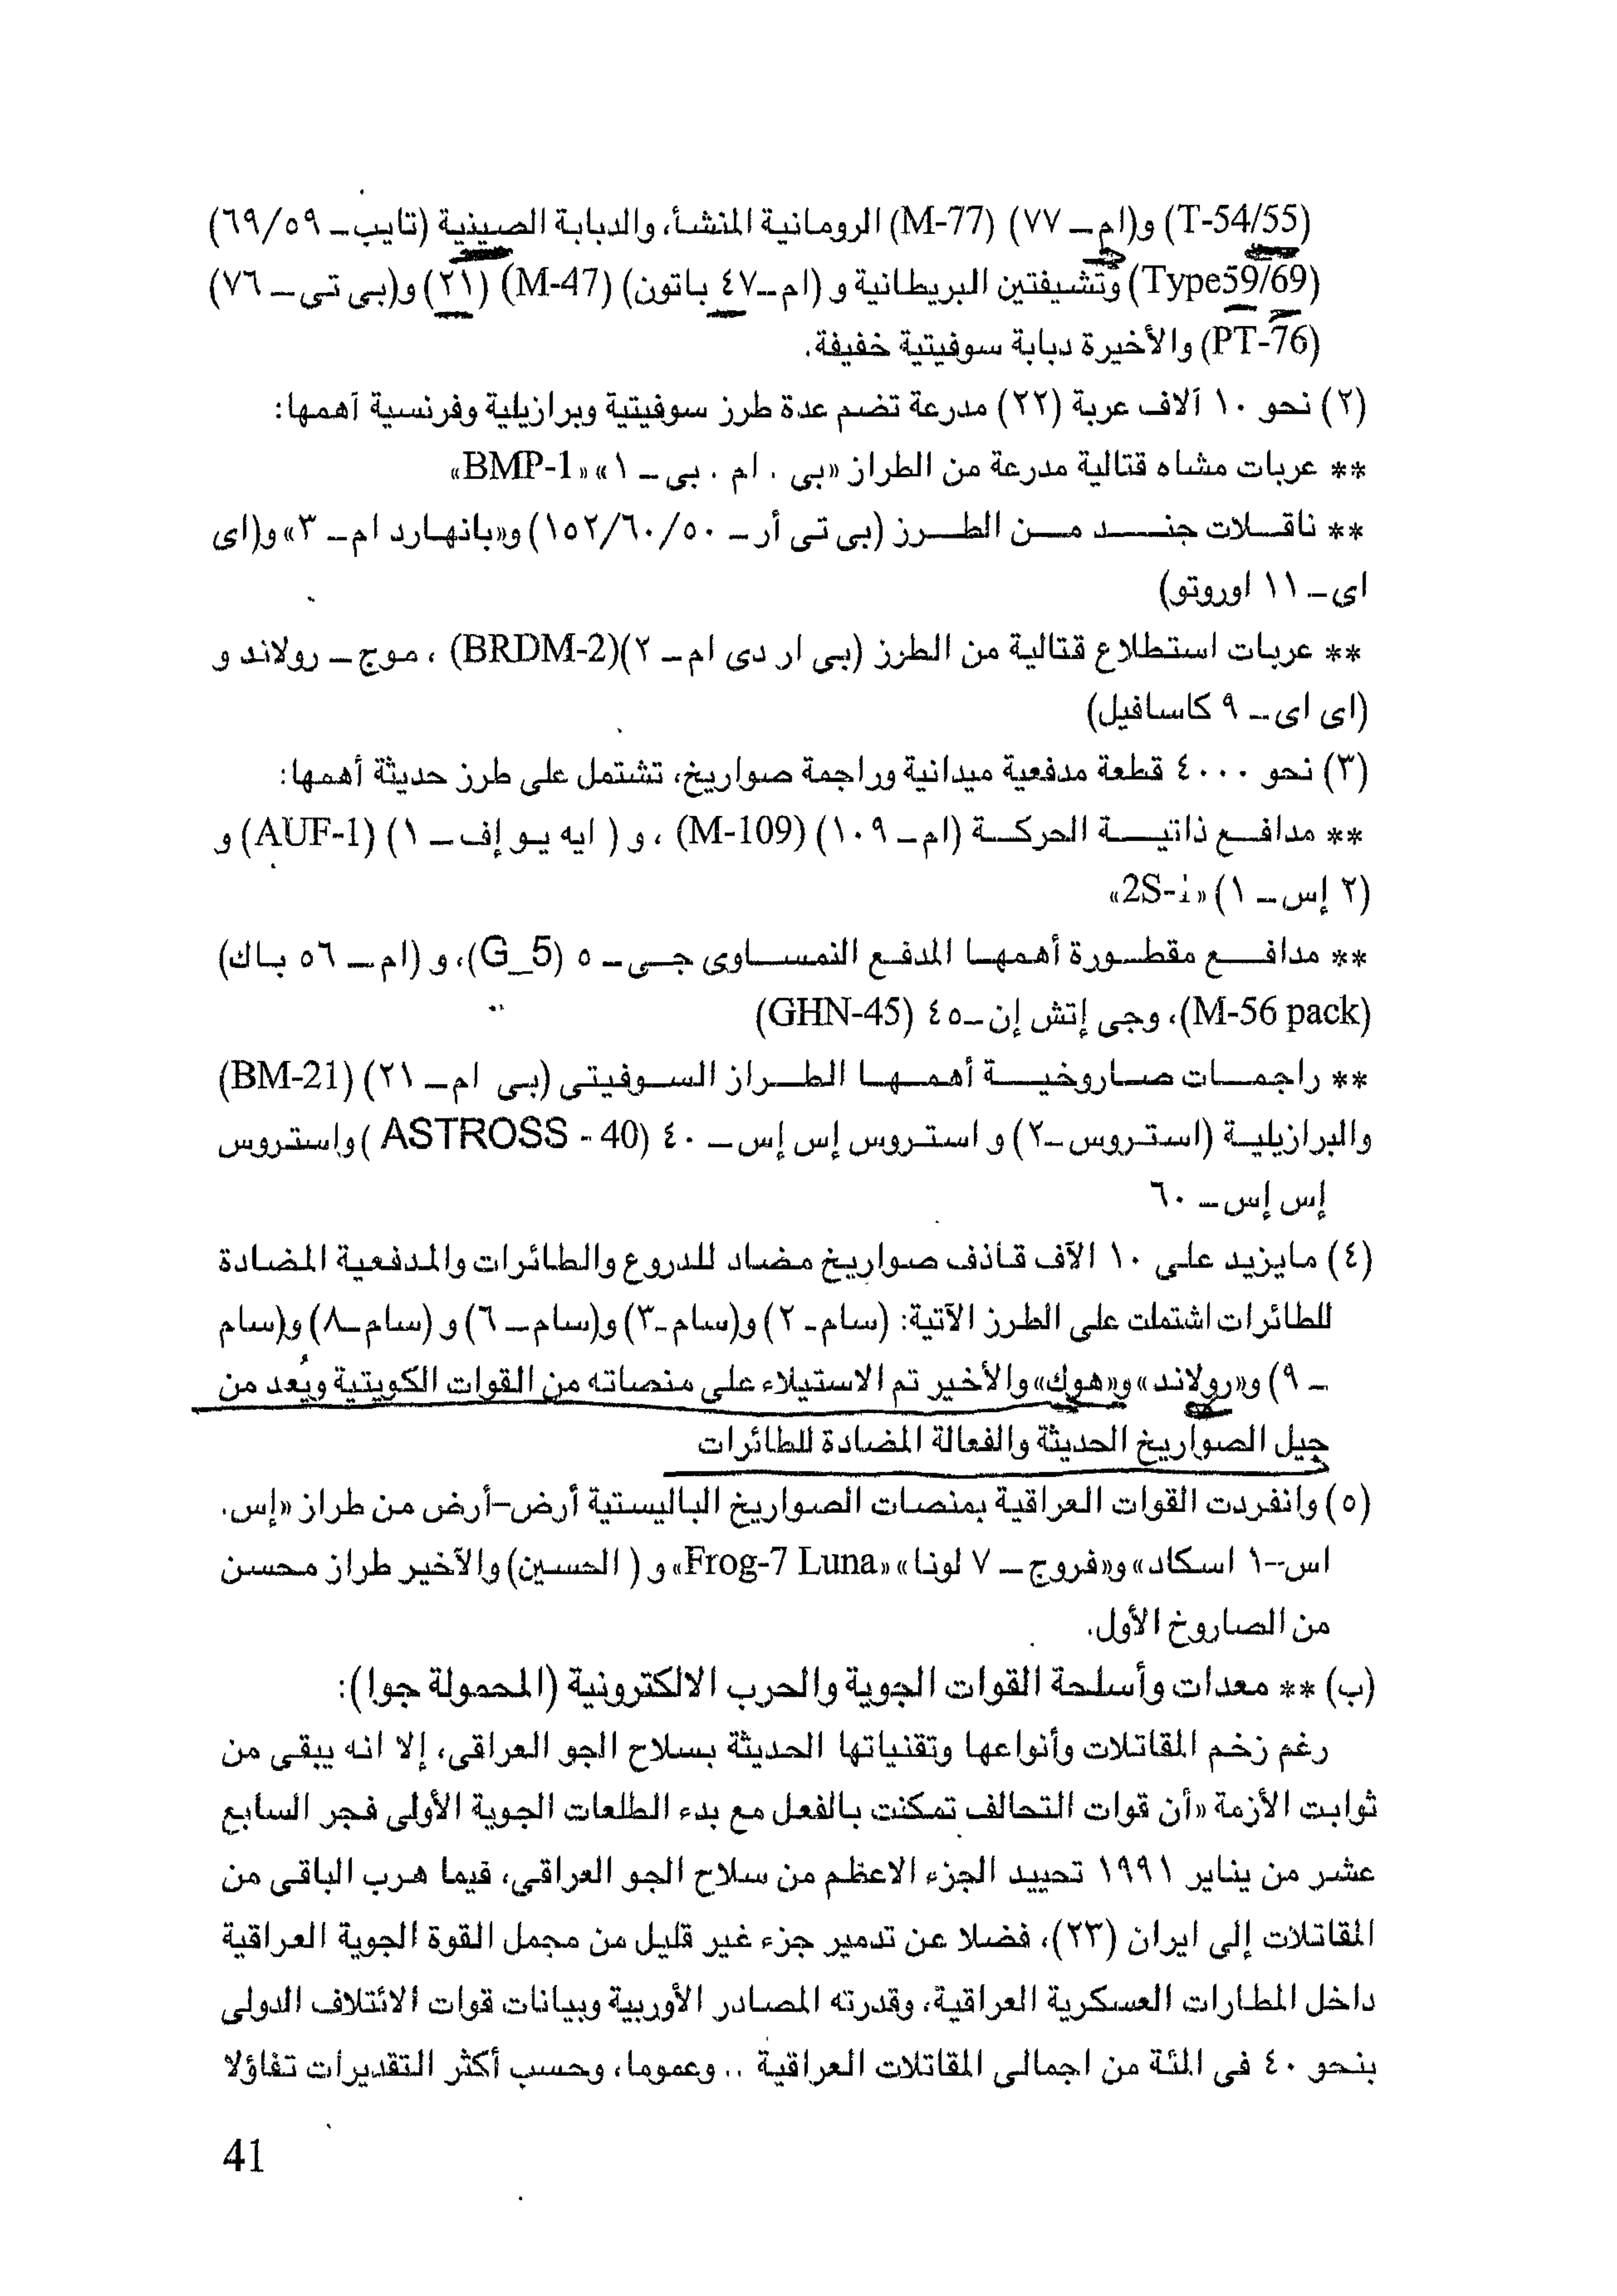 (T-54/55) و(ام ـ ٧٧) (M-77) الرومانية المنشأ، والدبابة الصينية (تايب ـ ٦٩/٥٩)
(Type59/69) وتشيفتين البريطانية و (ام ـ ٤٧ باتون) (M-47) (٢١) و(بى تى ـ ٧٦)
(PT-76) والأخيرة دبابة سوفيتية خفيفة.
(٢) نحو ١٠ آلاف عربة (٢٢) مدرعة تضم عدة طرز سوفيتية وبرازيلية وفرنسية أهمها:
** عربات مشاه قتالية مدرعة من الطراز «بى . ام . بى ـ ١» «BMP-1»
** ناقلات جند من الطرز (بى تى أر ـ ١٥٢/٦٠/٥٠) و«بانهارد ام ـ ٣» و(اى
اى ـ ١١ اوروتو)
** عربات استطلاع قتالية من الطرز (بى ار دى ام ـ ٢)(BRDM-2) ، موج ـ رولاند و
(اى اى ـ ٩ كاسافيل)
(٣) نحو ٤٠٠٠ قطعة مدفعية ميدانية وراجمة صواريخ، تشتمل على طرز حديثة أهمها:
** مدافع ذاتية الحركة (ام ـ ١٠٩) (M-109) ، و ( ايه يو إف ـ ١) (AUF-1) و
(٢ إس ـ ١) «2S-i»
** مدافع مقطورة أهمها المدفع النمساوى جى ـ ٥ (G_5)، و (ام ـ ٥٦ باك)
(M-56 pack)، وجى إتش إن ـ ٤٥ (GHN-45)
** راجمات صاروخية أهمها الطراز السوفيتى (بى ام ـ ٢١) (BM-21)
والبرازيلية (استروس ـ ٢) و استروس إس إس ـ ٤٠ (ASTROSS - 40 ) واستروس
إس إس ـ ٦٠
(٤) مايزيد على ١٠ الآف قاذف صواريخ مضاد للدروع والطائرات والمدفعية المضادة
للطائرات اشتملت على الطرز الآتية: (سام ـ ٢) و(سام ـ ٣) و(سام ـ ٦) و (سام ـ ٨) و(سام
ـ ٩) و«رولاند» و«هوك» والأخير تم الاستيلاء على منصاته من القوات الكويتية ويُعد من
جيل الصواريخ الحديثة والفعالة المضادة للطائرات
(٥) وانفردت القوات العراقية بمنصات الصواريخ الباليستية أرض-أرض من طراز «إس.
اس--١ اسكاد» و«فروج ـ ٧ لونا» «Frog-7 Luna» و ( الحسين) والآخير طراز محسن
من الصاروخ الأول.
(ب) ** معدات وأسلحة القوات الجوية والحرب الالكترونية (المحمولة جوا):
رغم زخم المقاتلات وأنواعها وتقنياتها الحديثة بسلاح الجو العراقى، إلا انه يبقى من
ثوابت الأزمة «أن قوات التحالف تمكنت بالفعل مع بدء الطلعات الجوية الأولى فجر السابع
عشر من يناير ١٩٩١ تحييد الجزء الاعظم من سلاح الجو العراقى، فيما هرب الباقى من
المقاتلات إلى ايران (٢٣)، فضلا عن تدمير جزء غير قليل من مجمل القوة الجوية العراقية
داخل المطارات العسكرية العراقية، وقدرته المصادر الأوربية وبيانات قوات الائتلاف الدولى
بنحو ٤٠ فى المئة من اجمالى المقاتلات العراقية .. وعموما، وحسب أكثر التقديرات تفاؤلا
41